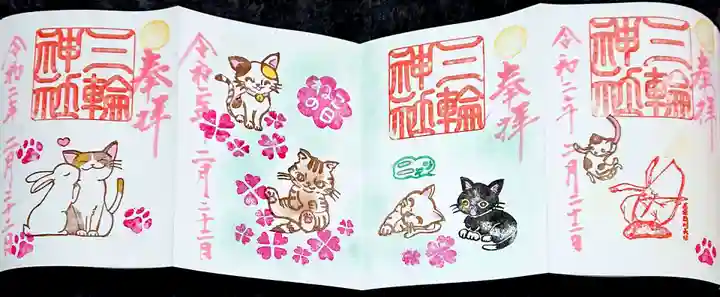 奉拝
三輪
神社
令和二年 二月二十二日
奉拝
三輪
神社
ねこ
の日
令和二年 二月二十二日
奉拝
三輪
神社
令和二年 二月二十二日